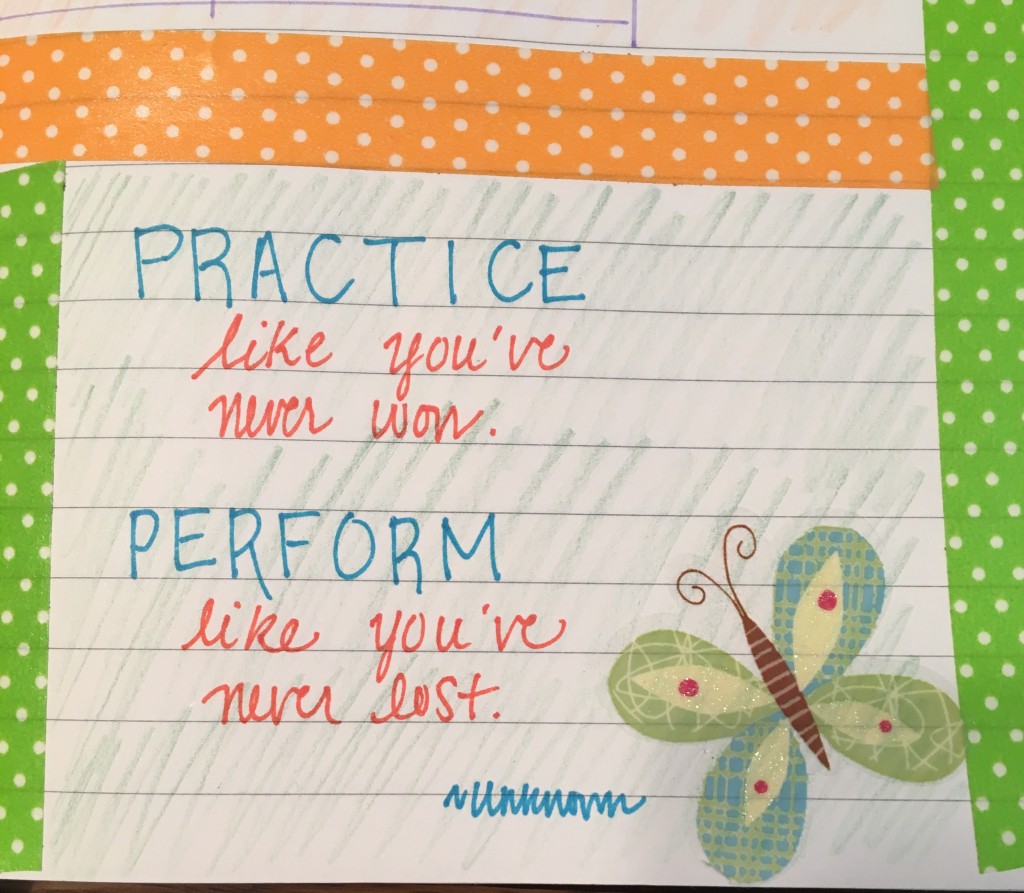 PRACTICE
like you've
never won.
PERFORM
like you've
never lost.
~Unknown